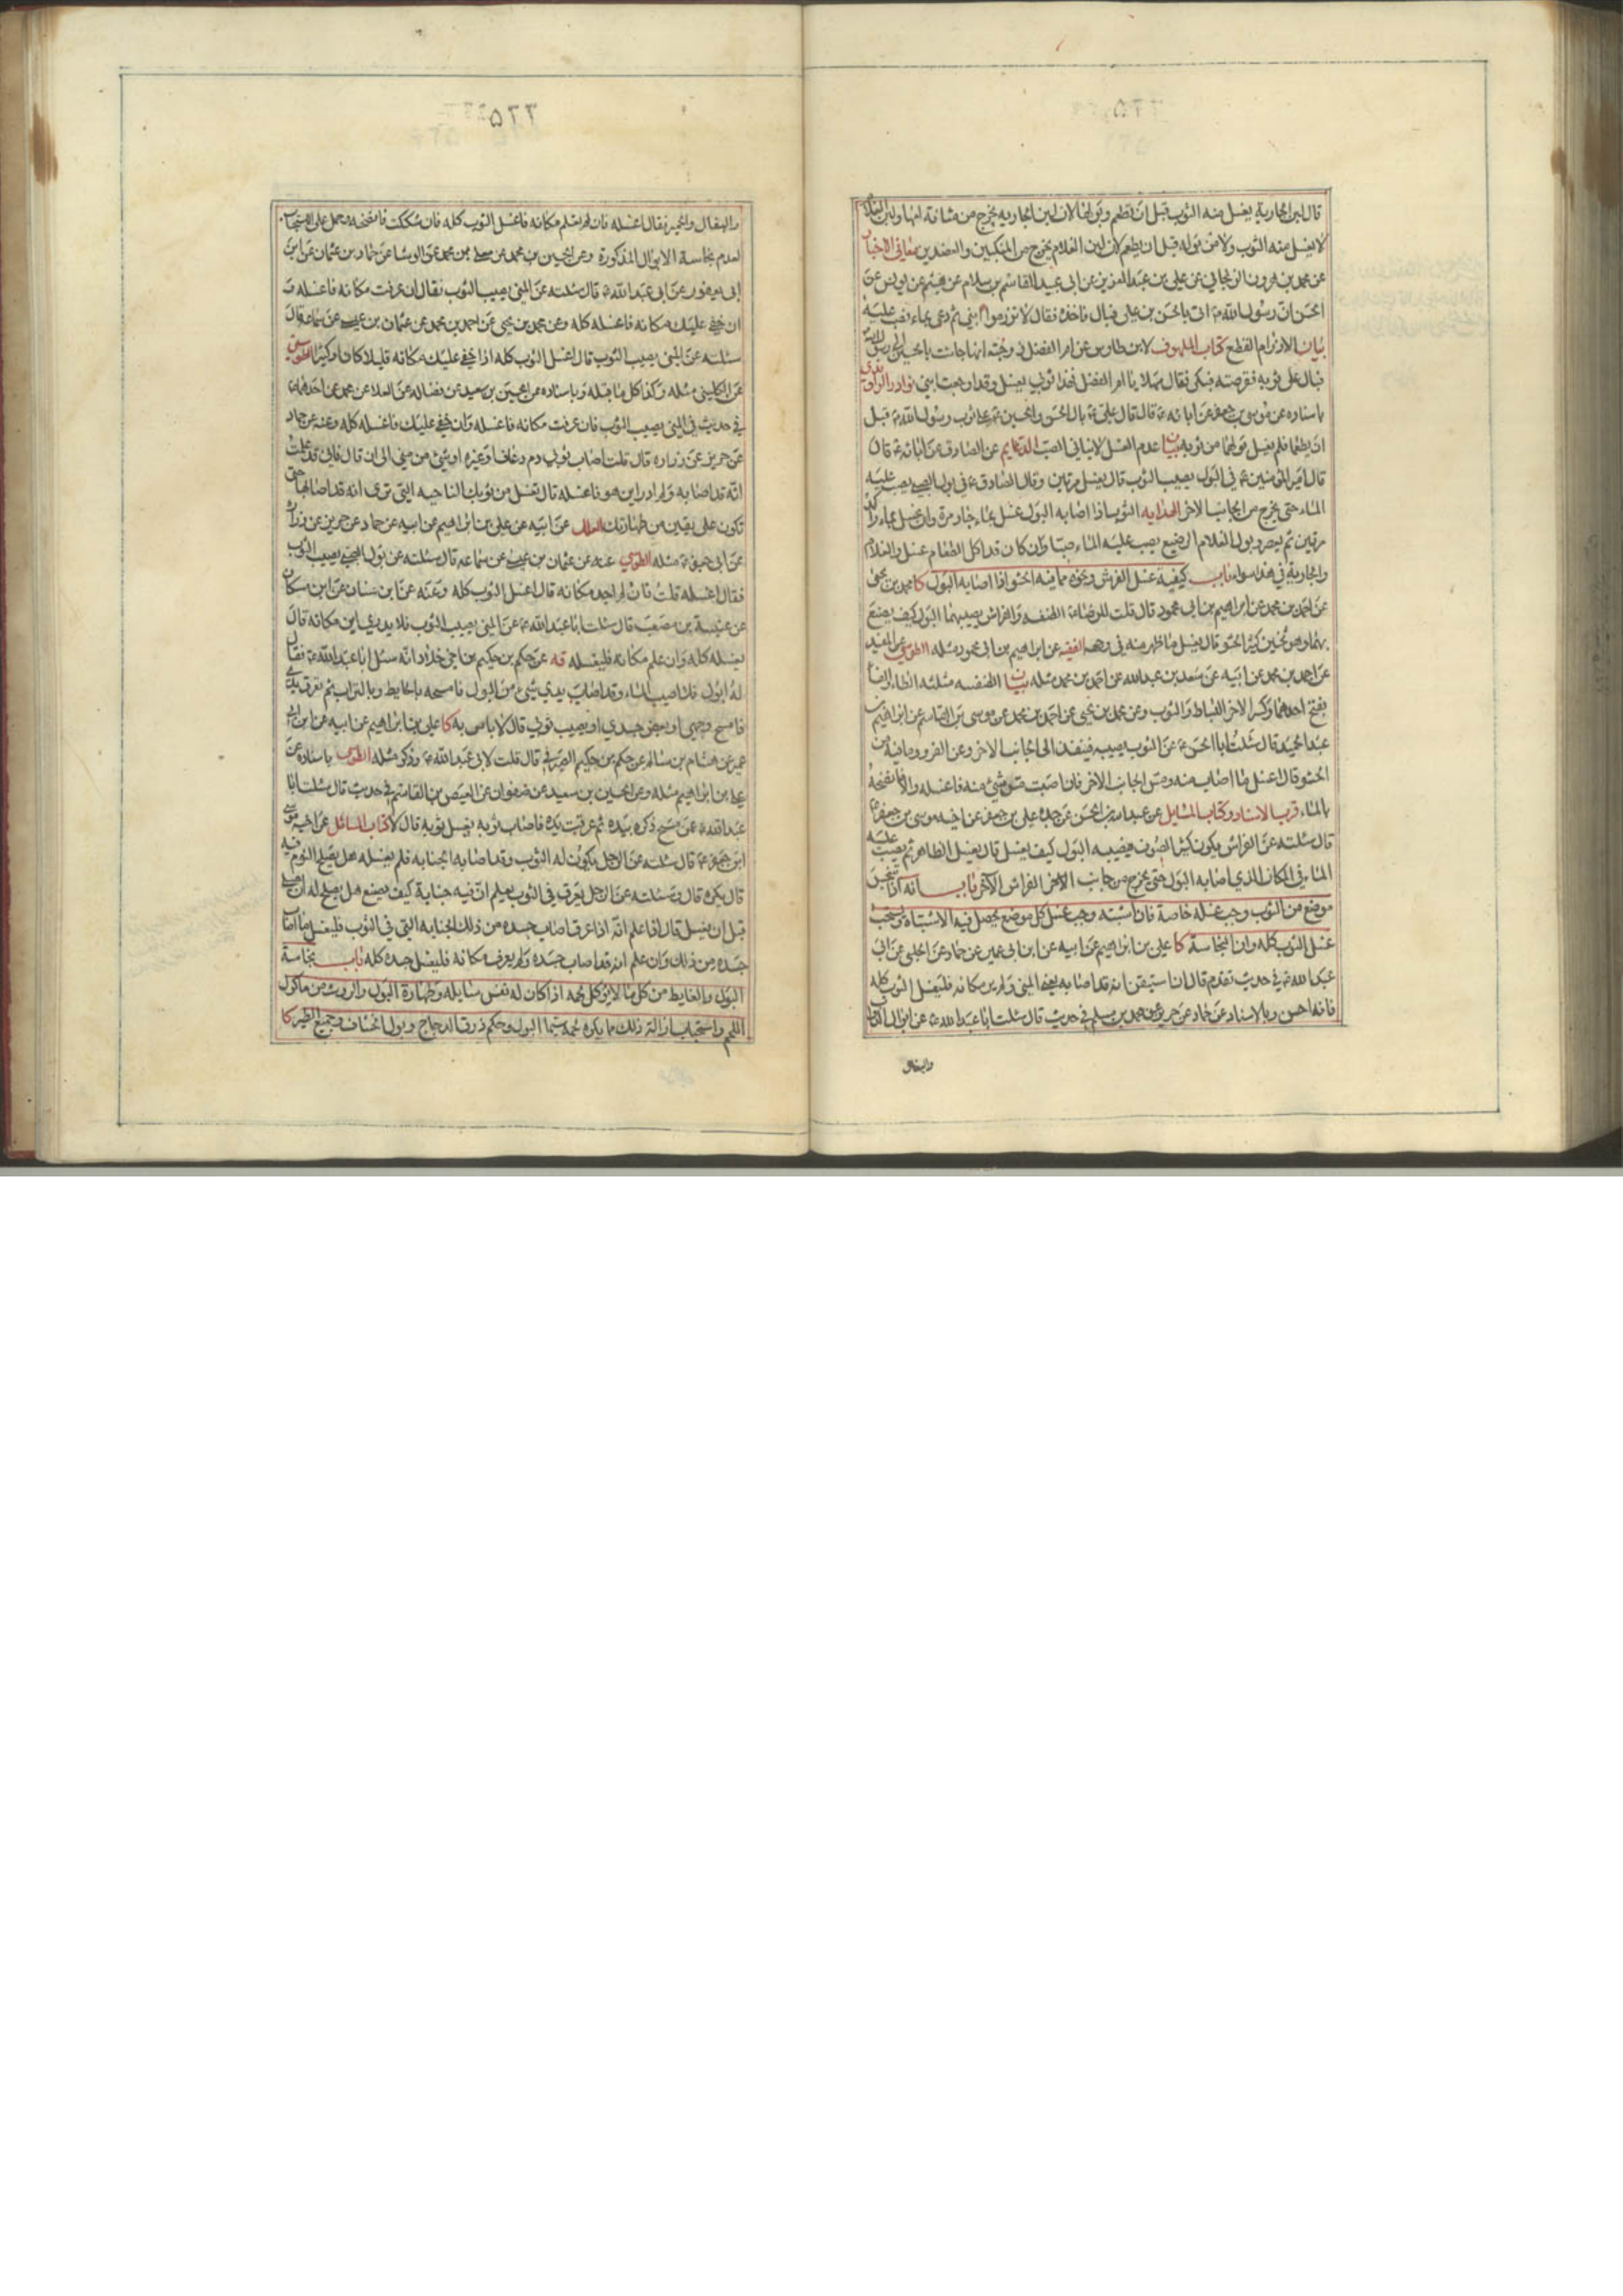 قال لبن الجارية يغسل منه الثوب قبل ان تطعم وبولها لان لبن الجارية يخرج من مثانة امها ولبن الغلام
لا يغسل منه الثوب ولا من بوله قبل ان يطعم لان لبن الغلام يخرج من المنكبين والعضدين معاني الاخبار
عن محمد بن هرون الزنجاني عن علي بن عبد العزيز عن ابي عبيد القاسم بن سلام عن هيثم عن يونس عن
الحسن ان رسول الله ص اتى بالحسن بن علي فبال فاخذ فقال لا تزرموا ابني ثم دعى بماء فصب عليه
بيان الازرام القطع كتاب الملهوف لابن طاوس عن ام الفضل زوجة انها جاءت بالحسين الى رسول الله
فبال على ثوبه فقرصته فبكى فقال مهلا يا ام الفضل فهذا ثوبي يغسل وقد اوجعت ابني نوادر الراوندي
باسناده عن موسى بن جعفر عن ابائه ع قال قال علي ع بال الحسن والحسين ع على ثوب رسول الله ص قبل
ان يطعما فلم يغسل بولهما من ثوبه بيان عدم الغسل لا ينافي الصب الدعايم عن الصادق عن ابائه ع قال
قال امير المؤمنين ع في البول يصيب الثوب قال يغسل مرتين وقال الصادق ع في بول الصبي يصب عليه
الماء حتى يخرج من الجانب الاخر الهدايه الثوب اذا اصابه البول غسل بماء جار مرة وان غسل بماء راكد
مرتين ثم يعصر وبول الغلام الرضيع يصب عليه الماء صبا وان كان قد اكل الطعام غسل والغلام
والجارية في هذا سواء باب كيفية غسل الفرش ونحوه مما فيه الحشو اذا اصابه البول كا محمد بن يحيى
عن احمد بن محمد عن ابراهيم بن ابي محمود قال قلت للرضا ع الطنفسه والفراش يصيبهما البول كيف يصنع
بهما وهو ثخين كثير الحشو قال يغسل ما ظهر منه في وجهه الفقيه عن ابراهيم بن ابي محمود مثله الطوسي عن المفيد
عن احمد بن محمد عن ابيه عن سعد بن عبد الله عن احمد بن محمد مثله بيان الطنفسه مثلثه الطاء والفاء
بفتح احدهما وكسر الاخر البساط والثوب وعن محمد بن يحيى عن احمد بن محمد عن موسى بن القاسم عن ابراهيم بن
عبد الحميد قال سئلت ابا الحسن ع عن الثوب يصيبه فينفذ الى الجانب الاخر وعن الفرو وما فيه من
الحشو قال اغسل ما اصاب منه ومس الجانب الاخر فان اصبت مس شيء منه فاغسله والا فانضحه
بالماء قرب الاسناد وكتاب المسايل عن عبد الله بن الحسن عن جده علي بن جعفر عن اخيه موسى بن جعفر ع
قال سئلته عن الفراش يكون كثير الصوف فيصيبه البول كيف يغسل قال يغسل الظاهر ثم يصب عليه
الماء في المكان الذي اصابه البول حتى يخرج من جانب الاخر الفراش الاخر باب انه اذا تنجس
موضع من الثوب وجب غسله خاصة فان اشتبه وجب غسل كل موضع يحصل فيه الاشتباه ويستحب
غسل الثوب كله وان النجاسة كا علي بن ابراهيم عن ابيه عن ابن ابي عمير عن حماد عن الحلبي عن ابي
عبد الله ع في حديث تقدم قال ان استيقن انه قد اصابه يعني المني ولم ير مكانه فليغسل الثوب كله
فانه احسن وبالاسناد عن حماد عن حريز عن محمد بن مسلم في حديث قال سئلت ابا عبد الله ع عن ابوال الدواب
والبغال
والبغال والحمير فقال اغسله فان لم يعلم مكانه فاغسل الثوب كله فان شككت فانضحه محمل على الاستحباب
لعدم نجاسة الابوال المذكورة وعن الحسين بن محمد عن معلى بن محمد عن الوشا عن حماد بن عثمان عن ابن
ابي يعفور عن ابي عبد الله ع قال سئلته عن المني يصيب الثوب فقال ان عرفت مكانه فاغسله و
ان خفي عليك مكانه فاغسله كله وعن محمد بن يحيى عن احمد بن محمد عن عثمان بن عيسى عن سماعة قال
سئلته عن المني يصيب الثوب قال اغسل الثوب كله اذا خفي عليك مكانه قليلا كان او كثيرا الطوسي
عن الكليني مثله وكذا كل ما قبله وباسناده عن الحسين بن سعيد عن فضاله عن العلا عن محمد عن احدهما ع
في حديث في المني يصيب الثوب فان عرفت مكانه فاغسله وان خفي عليك فاغسله كله وعنه عن حماد
عن حريز عن زراره قال قلت اصاب ثوبي دم رعاف او غيره او شيء من مني الى ان قال فاني قد علمت
انه قد اصابه ولم ادر اين هو فاغسله قال تغسل من ثوبك الناحيه التي ترى انه قد اصابها حتى
تكون على يقين من طهارتك العلل عن ابيه عن علي بن ابراهيم عن ابيه عن حماد عن حريز عن زراره
عن ابي جعفر ع مثله الطوسي عنه عن عثمان بن عيسى عن سماعه قال سئلته عن بول الصبي يصيب الثوب
فقال اغسله قلت فان لم اجد مكانه قال اغسل الثوب كله وعنه عن ابن سنان عن ابن مسكان
عن عنبسة بن مصعب قال سئلت ابا عبد الله ع عن المني يصيب الثوب فلا يدري اين مكانه قال
يغسله كله وان علم مكانه فليغسله قه عن حكم بن حكيم بن اخي خلاد انه سئل ابا عبد الله ع فقال
له ابول فلا اصيب الماء وقد اصاب يدي شيء من البول فامسحه بالحايط وبالتراب ثم تعرق يدي
فامسح وجهي او بعض جسدي او يصيب ثوبي قال لا باس به كا علي بن ابراهيم عن ابيه عن ابن ابي
عمير عن هشام بن سالم عن حكم بن حكيم الصيرفي قال قلت لابي عبد الله ع وذكر مثله الطوسي باسناده عن
علي بن ابراهيم مثله وعن الحسين بن سعيد عن صفوان عن العيص بن القاسم في حديث قال سئلت ابا
عبد الله ع عن مسح ذكره بيده ثم عرقت يده فاصاب ثوبه يغسل ثوبه قال لا كتاب المسائل عن اخيه موسى
ابن جعفر ع قال سئلته عن الرجل يكون له الثوب وقد اصابه الجنابه فلم يغسله هل يصلح النوم فيه
قال يكره قال وسئلته عن الرجل يعرق في الثوب يعلم ان فيه جنابة كيف يصنع هل يصلح له ان يصلي
قبل ان يغسل قال اذا علم انه اذا عرق اصاب جسده من ذلك الجنابه التي في الثوب فليغسل ما اصاب
جسده من ذلك وان علم انه قد اصاب جسده ولم يعرف مكانه فليغسل جسده كله باب نجاسة
البول والغايط من كل ما لا يؤكل لحمه اذا كان له نفس سايله وطهارة البول والروث من ماكول
اللحم واستحباب ازالة ذلك مما يكره لحمه سيما البول وحكم ذرق الدجاج وبول الخشاف وجميع الطير كا